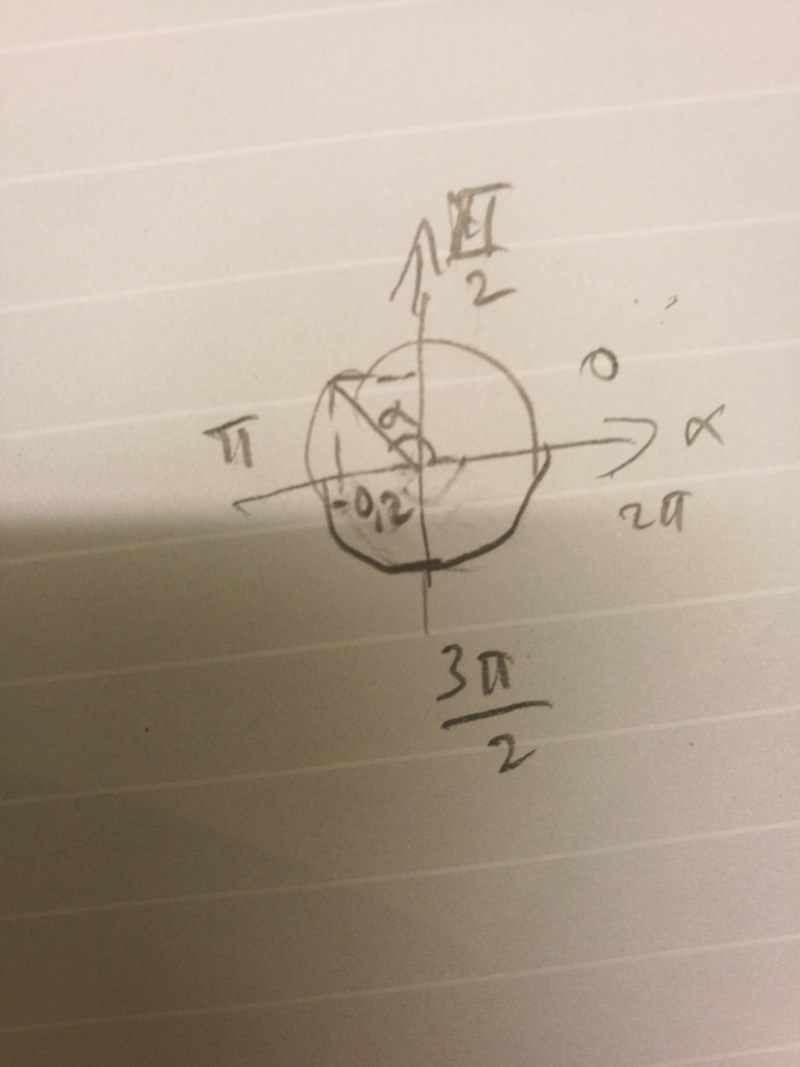 π
2
0
π
α
α
-0,2
2π
3π
2